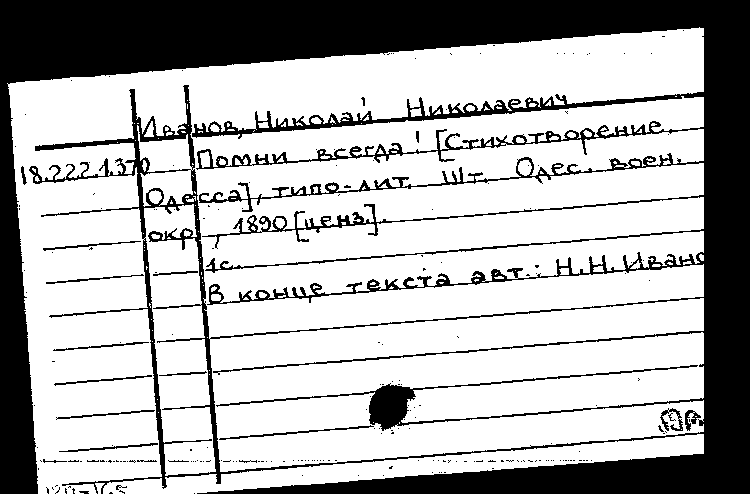 Иванов, Николай Николаевич
18.222.1.370 Помни всегда! [Стихотворение.
Одесса], типо-лит. Шт. Одес. воен.
окр., 1890 [ценз.].
1с.
В конце текста авт.: Н.Н. Ивано